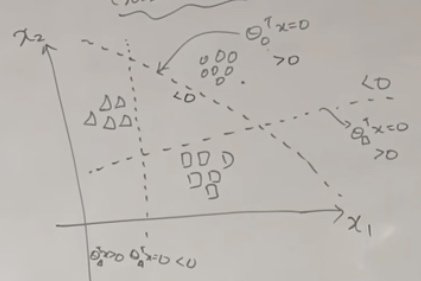 x₂
θ₀ᵀx=0
>0
<0
<0
θ□ᵀx=0
>0
x₁
θ△ᵀx>0 θ△ᵀx=0 <0